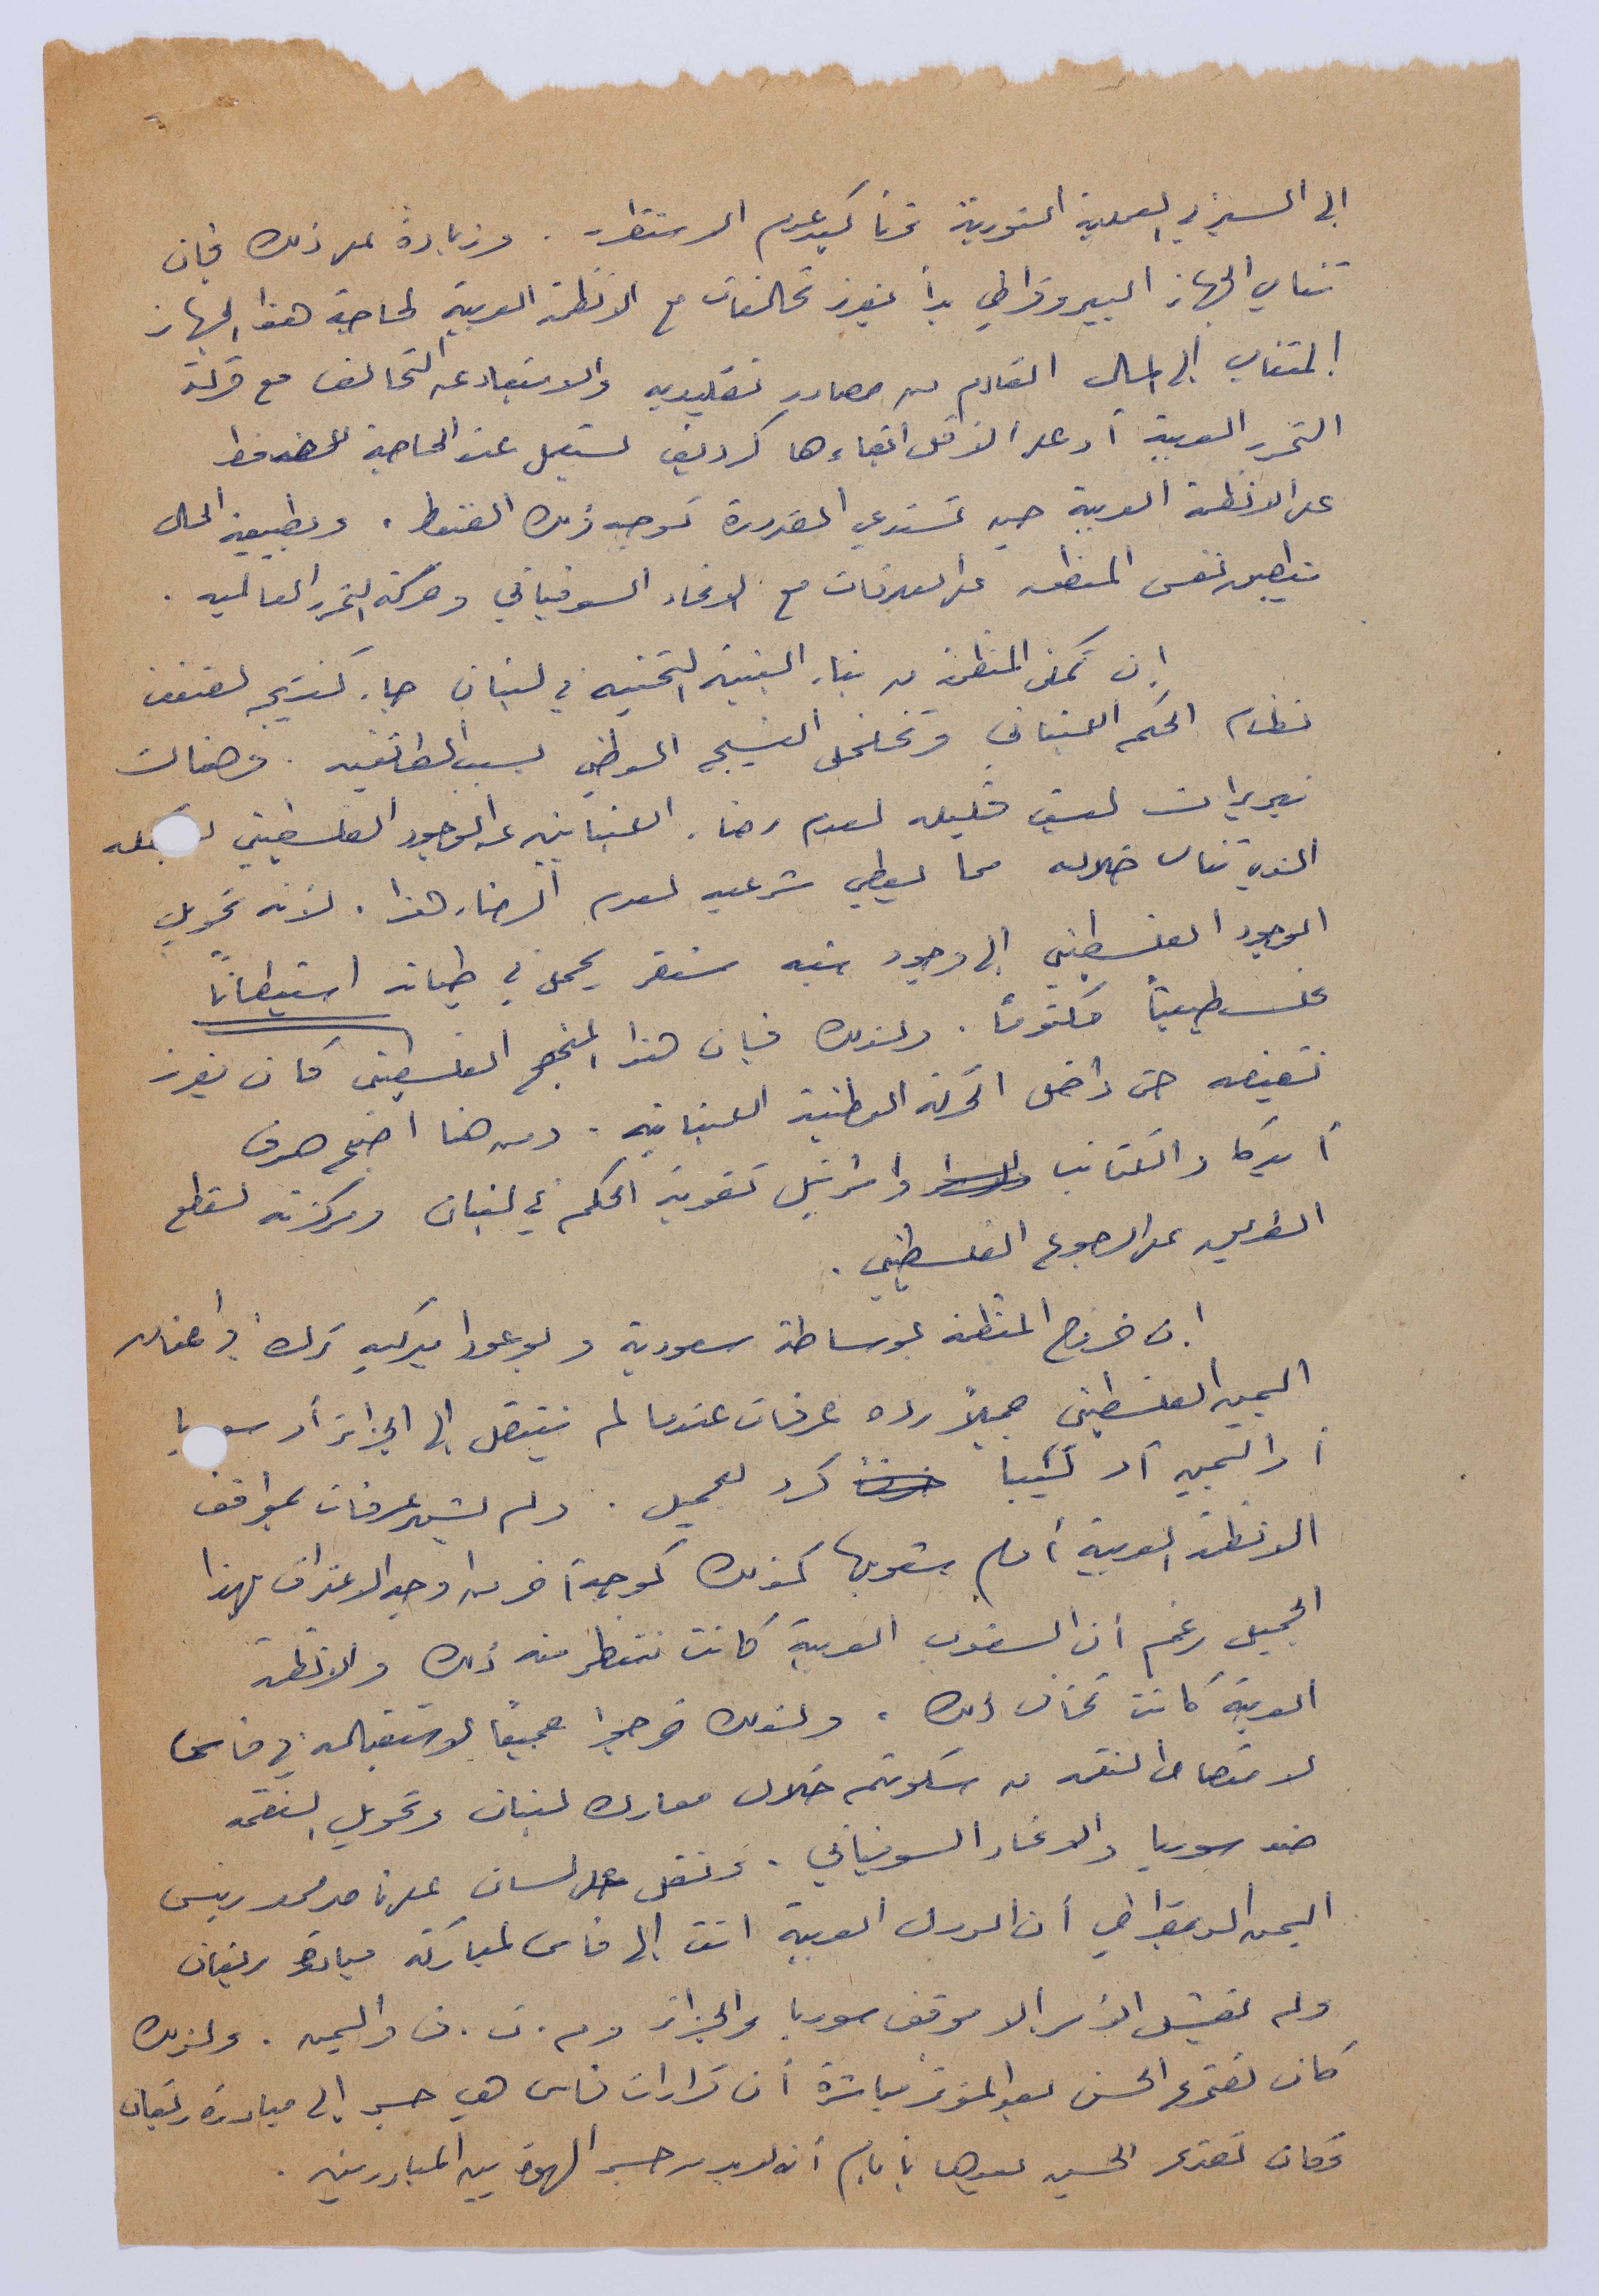 الى السير في العملية الثورية تحتاكيد عدم الاستقرار . وزيادة على ذلك فإن
تنامي الجهاز البيروقراطي بدأ يفرز تحالفات مع الانظمة العربية لحاجة هذا الجهاز
المتنامي إلى المال القادم من مصادر تقليديه والابتعاد عن التحالف مع حركة
التحرر العربية أو على الاقل ابقاءها كرديف يستعمل عند الحاجة للضغط
على الانظمة العربية حين تستدعي الضرورة توجيه ذلك الضغط . وبطبيعة الحال
ينطبق نفس المنطق على العلاقات مع الاتحاد السوفياتي وحركة التحرر العالميه .
إن تمكن المنظمة من بناء البنية التحتيه في لبنان جاء كنتيجه لضعف
نظام الحكم اللبناني وتخلخل النسيج الوطني بسبب الطائفيه . وهناك
تبريرات ليست قليله لعدم رضاء اللبنانيين عن الوجود الفلسطيني بشكله
الذي تنامى خلاله مما يعطي شرعيه لعدم الرضاء هذا . لأنه تحويل
الوجود الفلسطيني إلى وجود شبه مستقر يحمل في طياته استيطاناً
فلسطينياً مكتوماً . ولذلك فإن هذا المنهج الفلسطيني كان يفرز
نقيضه حتى داخل الحركة الوطنية اللبنانيه . ومن هنا أصبح هدف
أميركا والكتائب واسرائيل تقوية الحكم في لبنان ومركزته لقطع
الطريق على الرجوع الفلسطيني .
إن خروج المنظمة بوساطة سعودية وبوعود اميركيه ترك في اعناق
اليمين الفلسطيني جميلاً رده عرفات عندما لم ينتقل إلى الجزائر أو سوريا
أو اليمن أو ليبيا كرد للجميل . ولم يشهر عرفات بمواقف
الانظمة العربية أمام شعوبها كذلك كوجه آخر من اوجه الاعتراف بهذا
الجميل رغم أن الشعوب العربية كانت تنتظر منه ذلك والانظمة
العربية كانت تخاف ذلك . ولذلك خرجوا جميعاً لاستقباله في فاس
لامتصاص النقمة من سكوتهم خلال معارك لبنان وتحويل النقمة
ضد سوريا والاتحاد السوفياتي . ونقل على لسان علي ناصر محمد رئيس
اليمن الديمقراطي أن الدول العربية اتت إلى فاس لمباركة مبادرة ريغان
ولم يفشل الأمر إلا موقف سوريا والجزائر وم . ت . ف واليمن . ولذلك
كان تصريح الحسن بعد المؤتمر مباشرة أن قرارات فاس هي جسر إلى مبادرة ريغان
وكان تصريح الحسين بعدها بأيام أنه لا بد من جسر الهوة بين المبادرتين .